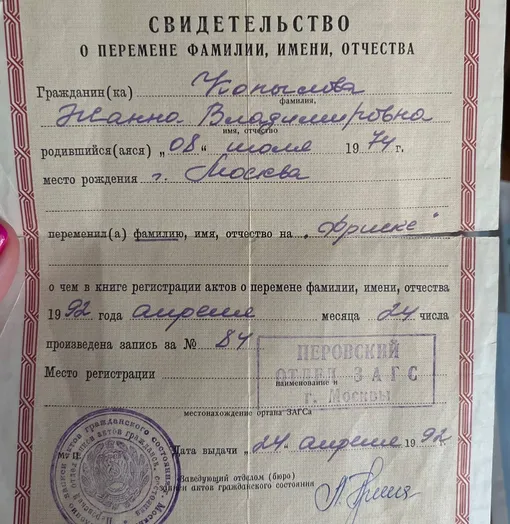 СВИДЕТЕЛЬСТВО
О ПЕРЕМЕНЕ ФАМИЛИИ, ИМЕНИ, ОТЧЕСТВА
Гражданин(ка) Копылова
фамилия,
Жанна Владимировна
имя, отчество
родившийся(аяся) „08“ июля 1974 г.
место рождения г. Москва
переменил(а) фамилию, имя, отчество на „Фриске“
о чем в книге регистрации актов о перемене фамилии, имени, отчества
1992 года апреля месяца 24 числа
произведена запись за № 84
ПЕРОВСКИЙ
ОТДЕЛ ЗАГС
г. Москвы
Место регистрации
наименование и
местонахождение органа ЗАГСа
Дата выдачи „24“ апреля 1992 г.
Заведующий отделом (бюро)
записи актов гражданского состояния